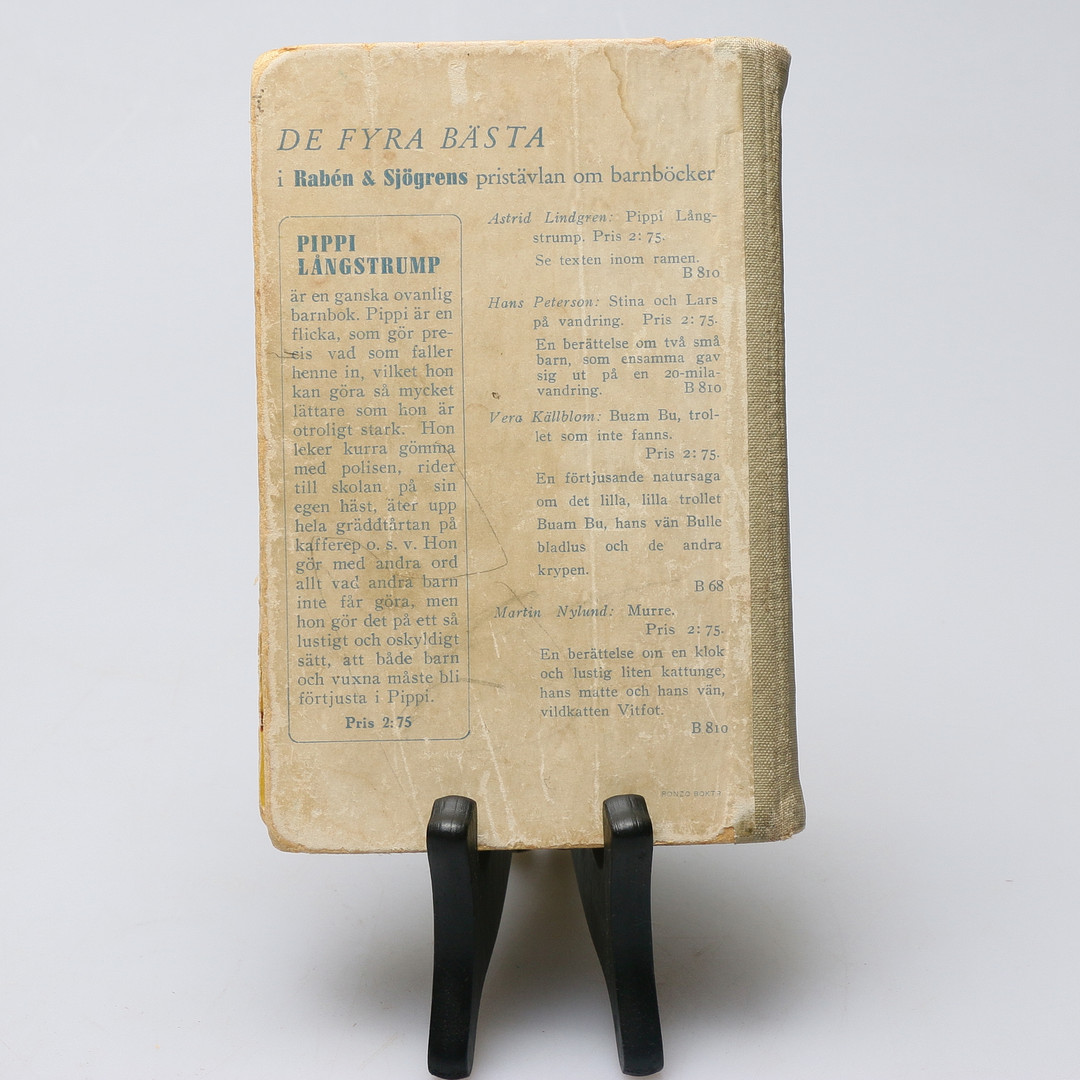 DE FYRA BÄSTA
i Rabén & Sjögrens pristävlan om barnböcker
PIPPI
LÅNGSTRUMP
är en ganska ovanlig
barnbok. Pippi är en
flicka, som gör pre-
cis vad som faller
henne in, vilket hon
kan göra så mycket
lättare som hon är
otroligt stark. Hon
leker kurra gömma
med polisen, rider
till skolan på sin
egen häst, äter upp
hela gräddtårtan på
kafferep o. s. v. Hon
gör med andra ord
allt vad andra barn
inte får göra, men
hon gör det på ett så
lustigt och oskyldigt
sätt, att både barn
och vuxna måste bli
förtjusta i Pippi.
Pris 2:75
Astrid Lindgren: Pippi Lång-
strump. Pris 2:75.
Se texten inom ramen.
B 810
Hans Peterson: Stina och Lars
på vandring. Pris 2:75.
En berättelse om två små
barn, som ensamma gav
sig ut på en 20-mila-
vandring. B 810
Vera Källblom: Buam Bu, trol-
let som inte fanns.
Pris 2:75.
En förtjusande natursaga
om det lilla, lilla trollet
Buam Bu, hans vän Bulle
bladlus och de andra
krypen.
B 68
Martin Nylund: Murre.
Pris 2:75.
En berättelse om en klok
och lustig liten kattunge,
hans matte och hans vän,
vildkatten Vitfot.
B 810